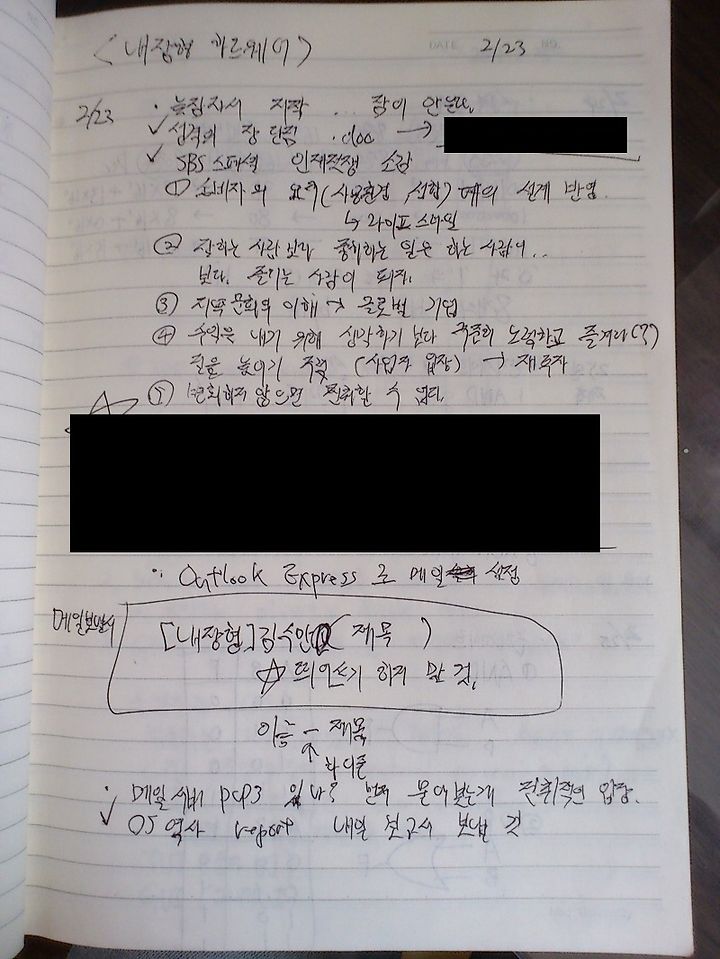 (내장형 하드웨어) 2/23
DATE NO.
2/23 · 늦잠자서 지각 ... 잠이 안온다.
✓ 성격의 장 단점 .doc →
✓ SBS 스페셜 인재전쟁 소감
① 소비자의 요구(사용환경, 성향) 설계 반영.
↳ 라이프 스타일
② 잘하는 사람보다 좋아하는 일을 하는 사람이..
보다. 즐기는 사람이 되자.
③ 지역문화의 이해 → 글로벌 기업
④ 수익을 내기 위해 생각하기 보다 노력하고 즐겨라(?)
질을 높이기 (사업자 입장) → 재투자
☆ ⑤ 변화하지 않으면 진취할 수 없다.
· Outlook Express 로 메일 설정
메일보낼시
[내장형]김수민( 제목 )
☆ 띄어쓰기 하지 말 것.
이름 - 제목
↑
하이픈
· 메일서버 pop3 인가? 먼저 물어보는게 진취적인 입장.
✓ OS 역사 report 내일 보고서 보낼 것